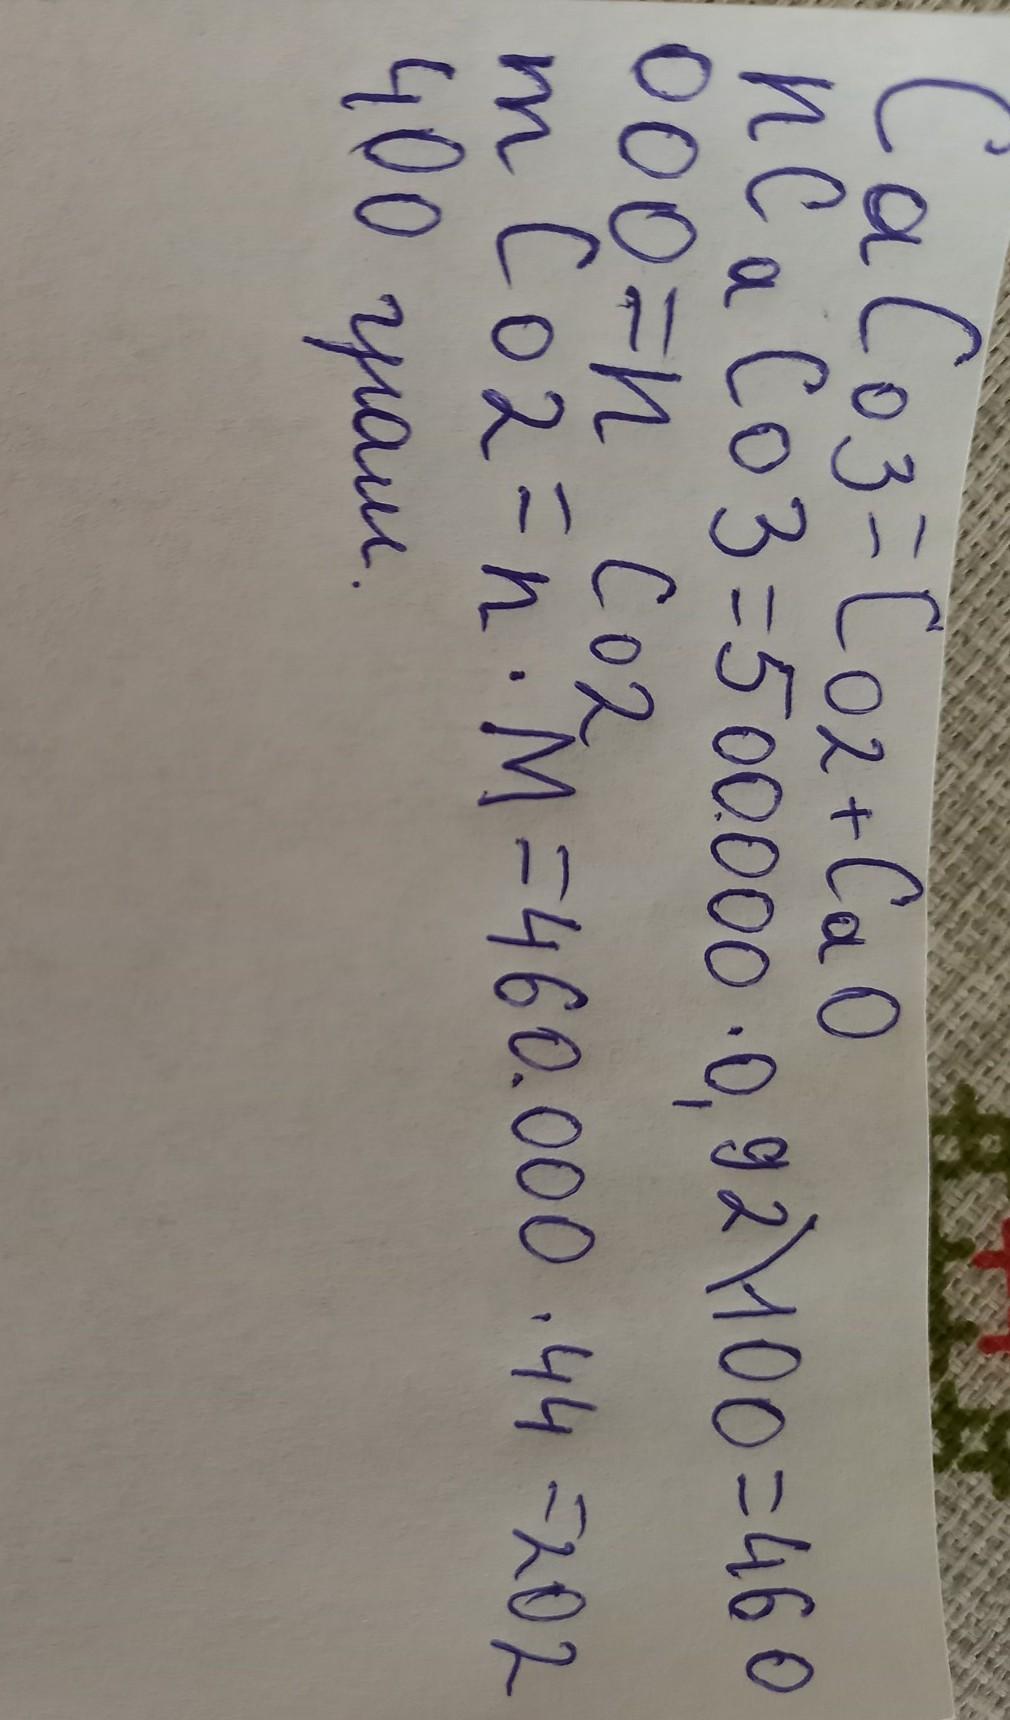 CaCo3=Co2+CaO
nCaCo3=500.000·0,92\100=460
000=n Co2
mCo2=n·M=460.000·44=202
400 грам.